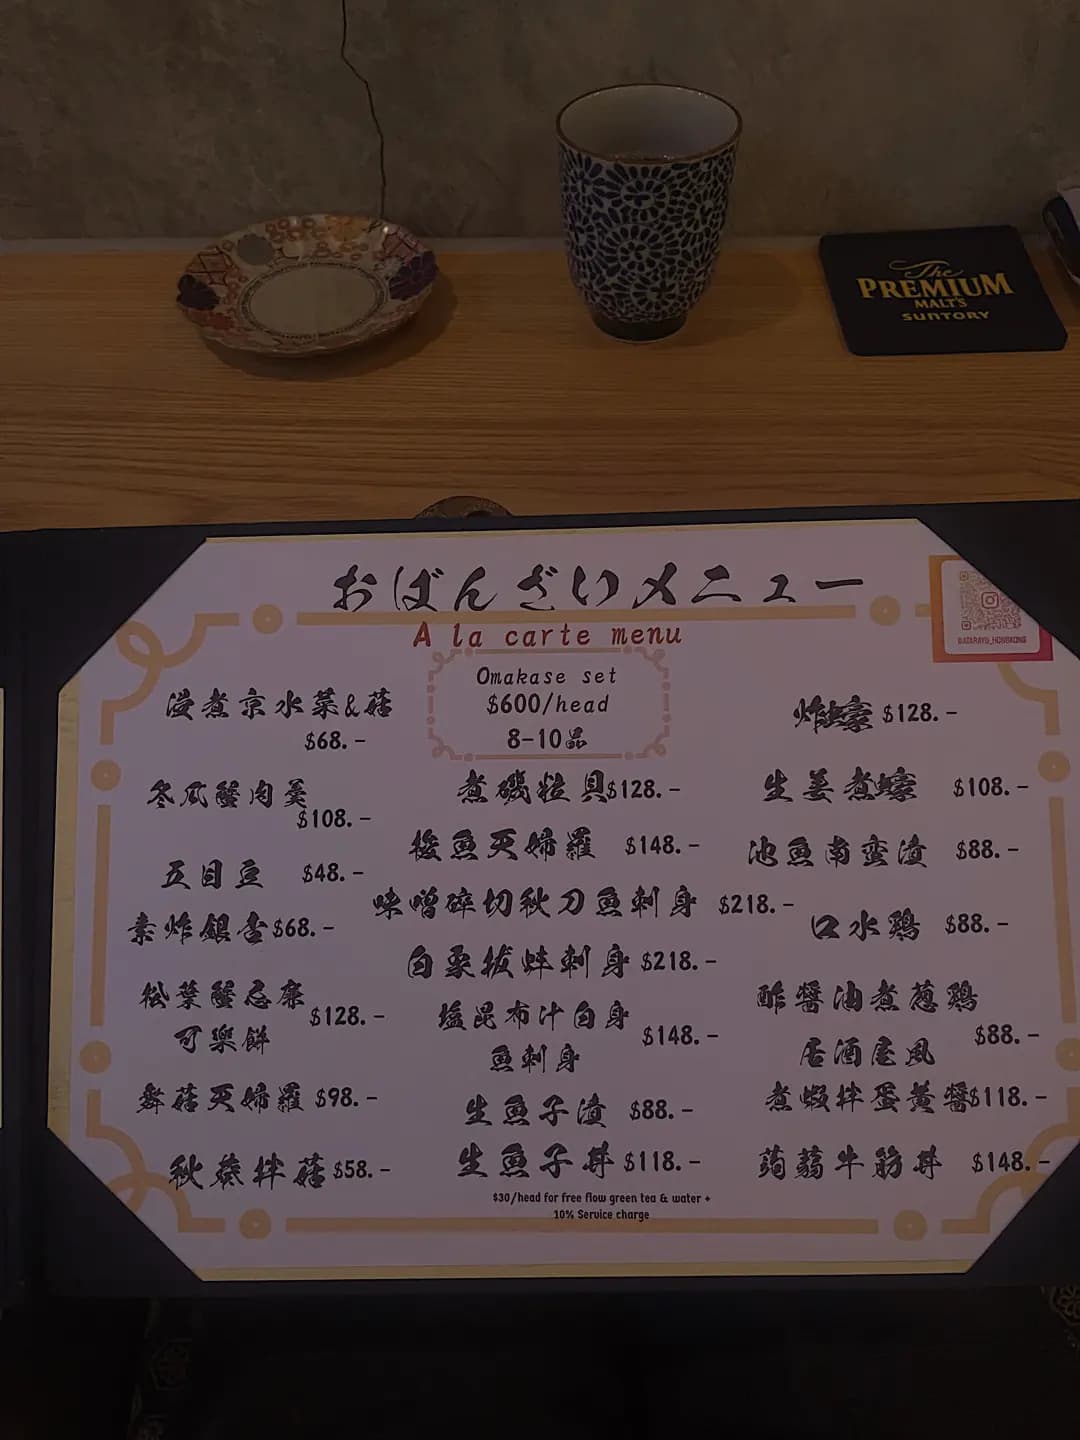 The
PREMIUM
MALT'S
SUNTORY
おばんざいメニュー
A la carte menu
Omakase set
$600/head
8-10品
浸煮京水菜&菇
$68.-
冬瓜蟹肉羹
$108.-
五目豆 $48.-
素炸銀杏$68.-
松葉蟹忌廉
可樂餅
$128.-
舞菇天婦羅 $98.-
秋葵拌菇$58.-
煮磯粒貝$128.-
魚天婦羅 $148.-
味噌碎切秋刀魚刺身 $218.-
白象拔蚌刺身$218.-
塩昆布汁白身
魚刺身
$148.-
生魚子漬 $88.-
生魚子丼$118.-
炸蠔 $128.-
生姜煮蠔 $108.-
池魚南蛮漬 $88.-
口水鶏 $88.-
酢醤油煮葱鶏
居酒屋風
$88.-
煮蝦拌蛋黄醤$118.-
蒟蒻牛筋丼 $148.-
$30/head for free flow green tea & water +
10% Service charge